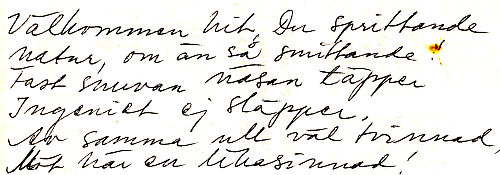 Välkommen hit, Du sprittande
natur, om än så smittande!
Fast snuvan näsan täpper
Ingeniet ej släpper,
Av samma ull väl tvinnad,
Möt här en likasinnad!